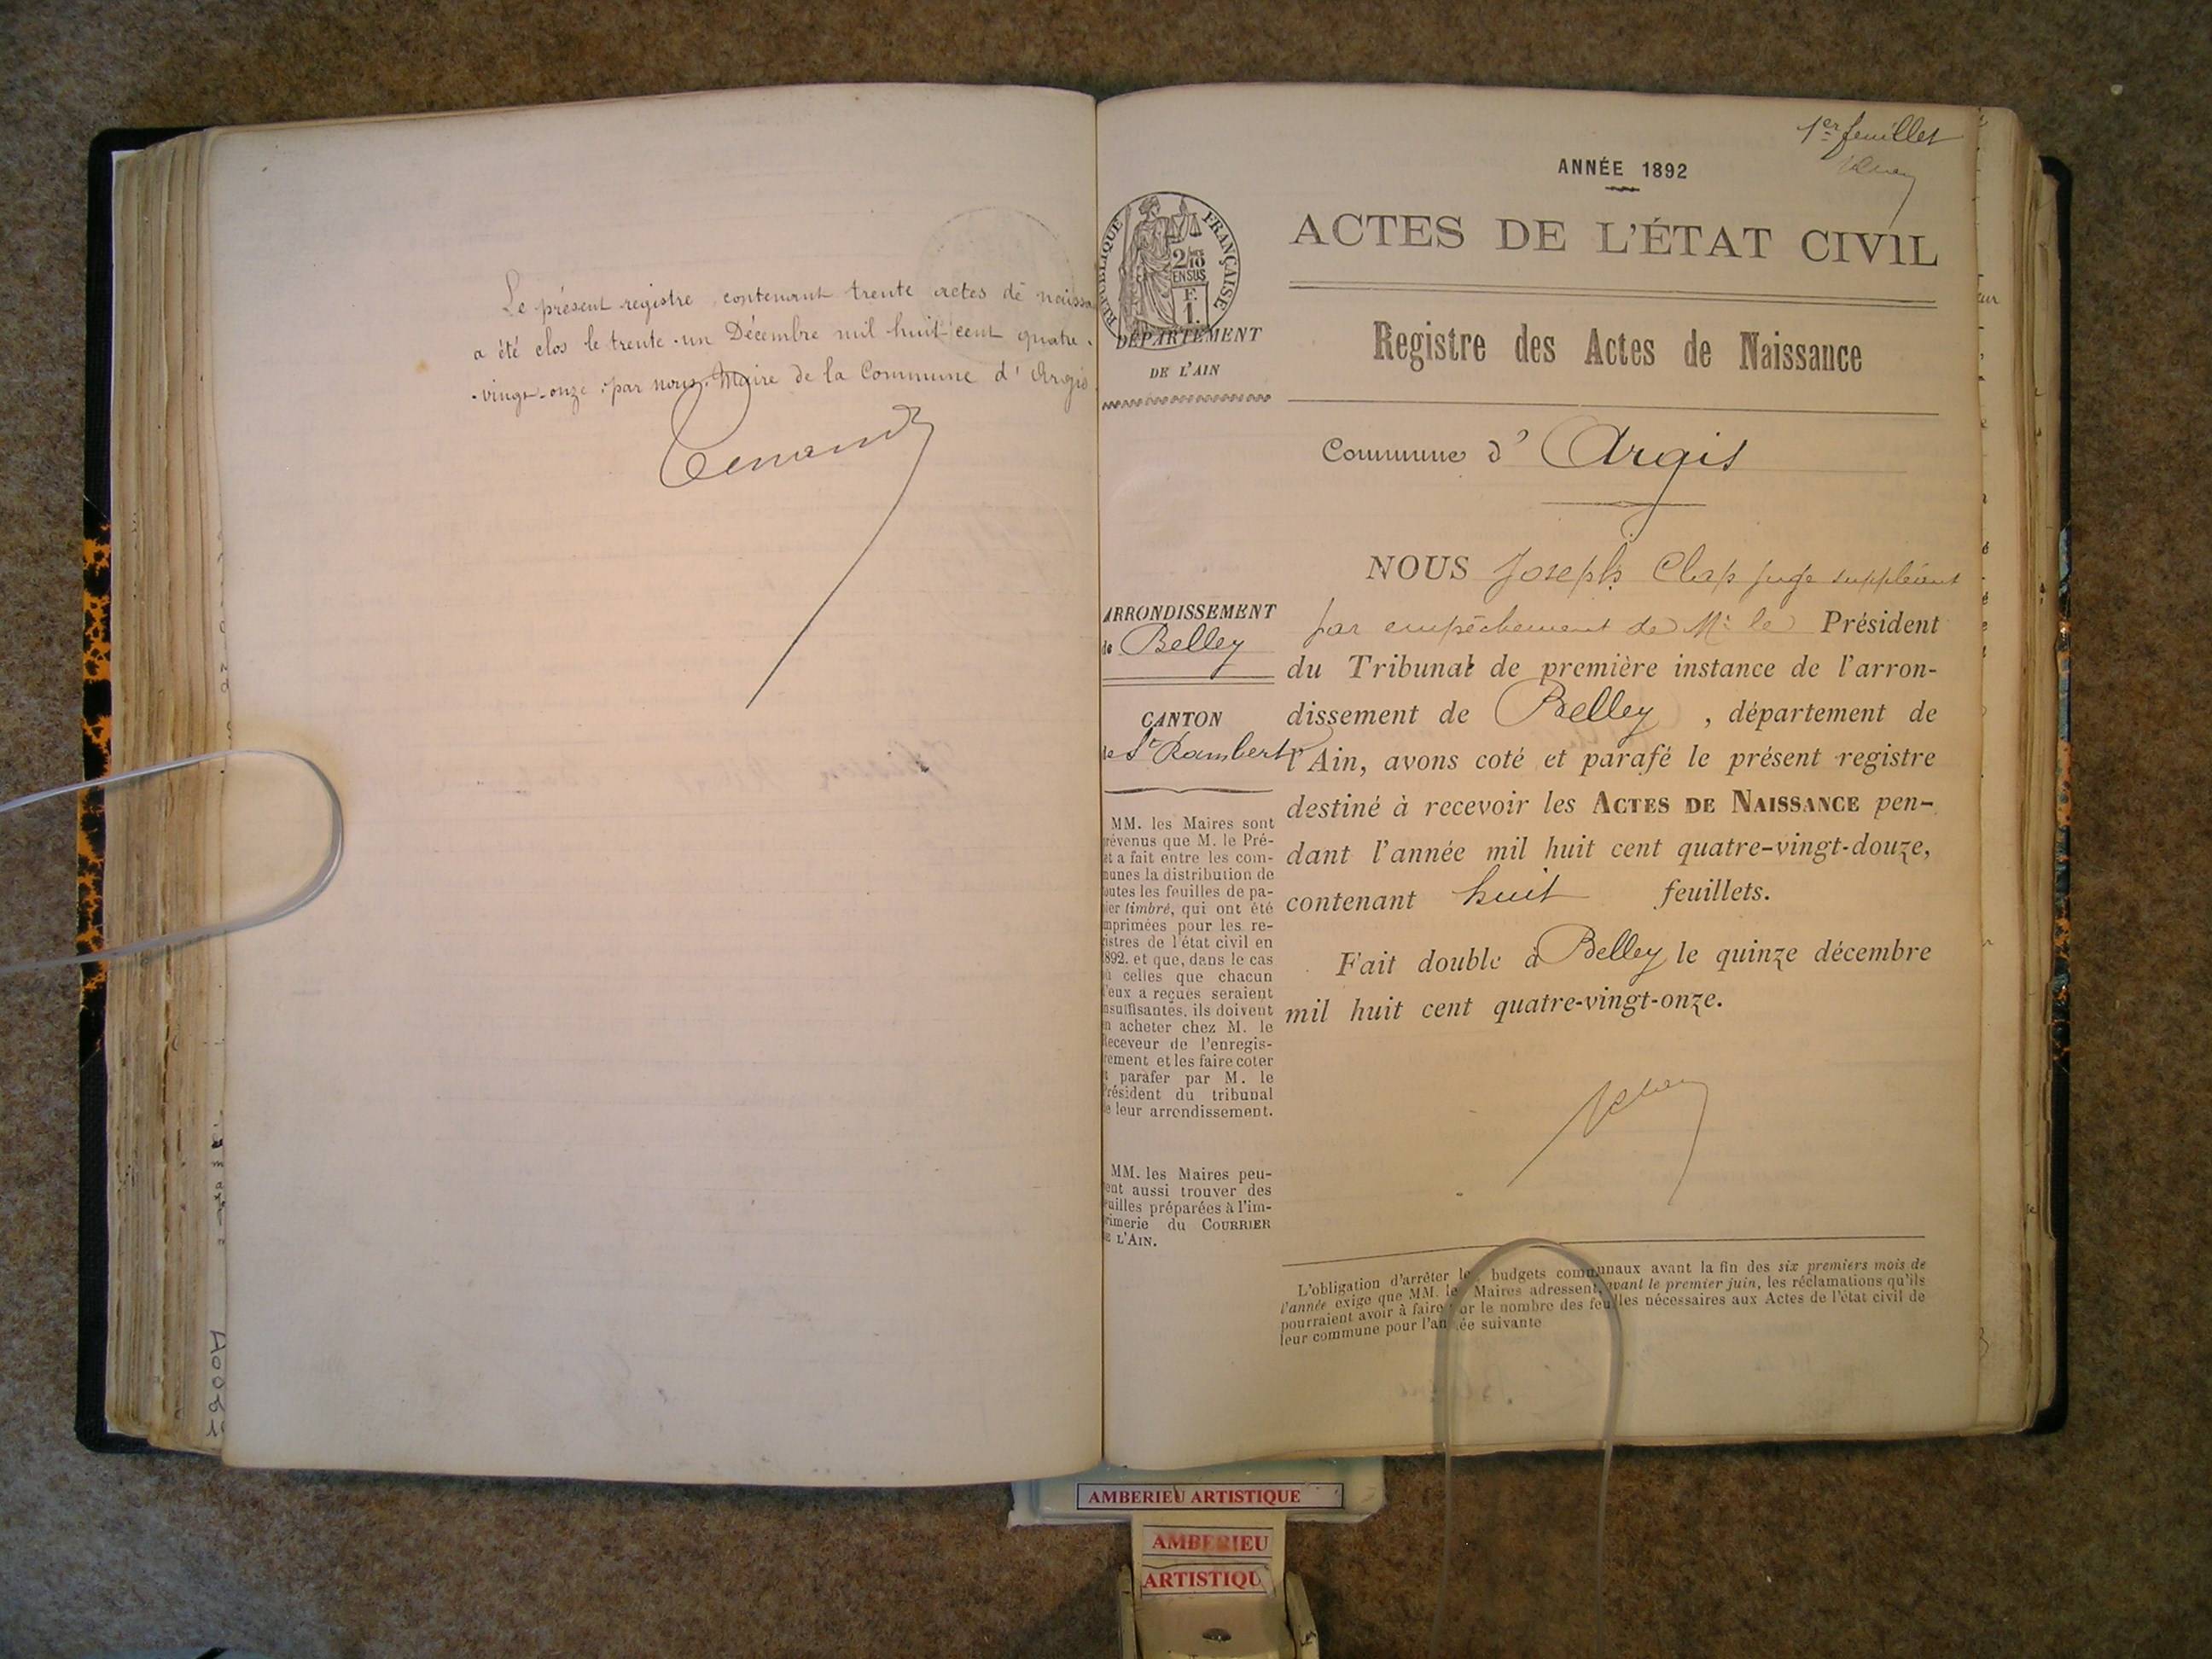 Le présent registre, contenant trente actes de naissa
a été clos le trente-un Décembre mil huit cent quatre-
-vingt-onze, par nous, Maire de la Commune d'Argis.
1er feuillet
ANNÉE 1892
ACTES DE L'ÉTAT CIVIL
Registre des Actes de Naissance
RÉPUBLIQUE FRANÇAISE
2/10
EN SUS
F.
1.
DÉPARTEMENT
DE L'AIN
Commune d'Argis
ARRONDISSEMENT
de Belley
CANTON
de St Rambert
MM. les Maires sont
prévenus que M. le Pré-
et a fait entre les com-
munes la distribution de
toutes les feuilles de pa-
pier timbré, qui ont été
imprimées pour les re-
gistres de l'état civil en
1892. et que, dans le cas
où celles que chacun
d'eux a reçues seraient
insuffisantes, ils doivent
en acheter chez M. le
Receveur de l'enregis-
rement et les faire coter
et parafer par M. le
Président du tribunal
de leur arrondissement.
MM. les Maires peu-
vent aussi trouver des
feuilles préparées à l'im-
primerie du COURRIER
DE L'AIN.
NOUS Joseph Clap juge suppléant
par empêchement de Mr le Président
du Tribunal de première instance de l'arron-
dissement de Belley, département de
l'Ain, avons coté et parafé le présent registre
destiné à recevoir les ACTES DE NAISSANCE pen-
dant l'année mil huit cent quatre-vingt-douze,
contenant huit feuillets.
Fait double à Belley le quinze décembre
mil huit cent quatre-vingt-onze.
L'obligation d'arrêter les budgets communaux avant la fin des six premiers mois de
l'année exige que MM. les Maires adressent, avant le premier juin, les réclamations qu'ils
pourraient avoir à faire sur le nombre des feuilles nécessaires aux Actes de l'état civil de
leur commune pour l'année suivante
AMBERIEU ARTISTIQUE
AMBERIEU
ARTISTIQU